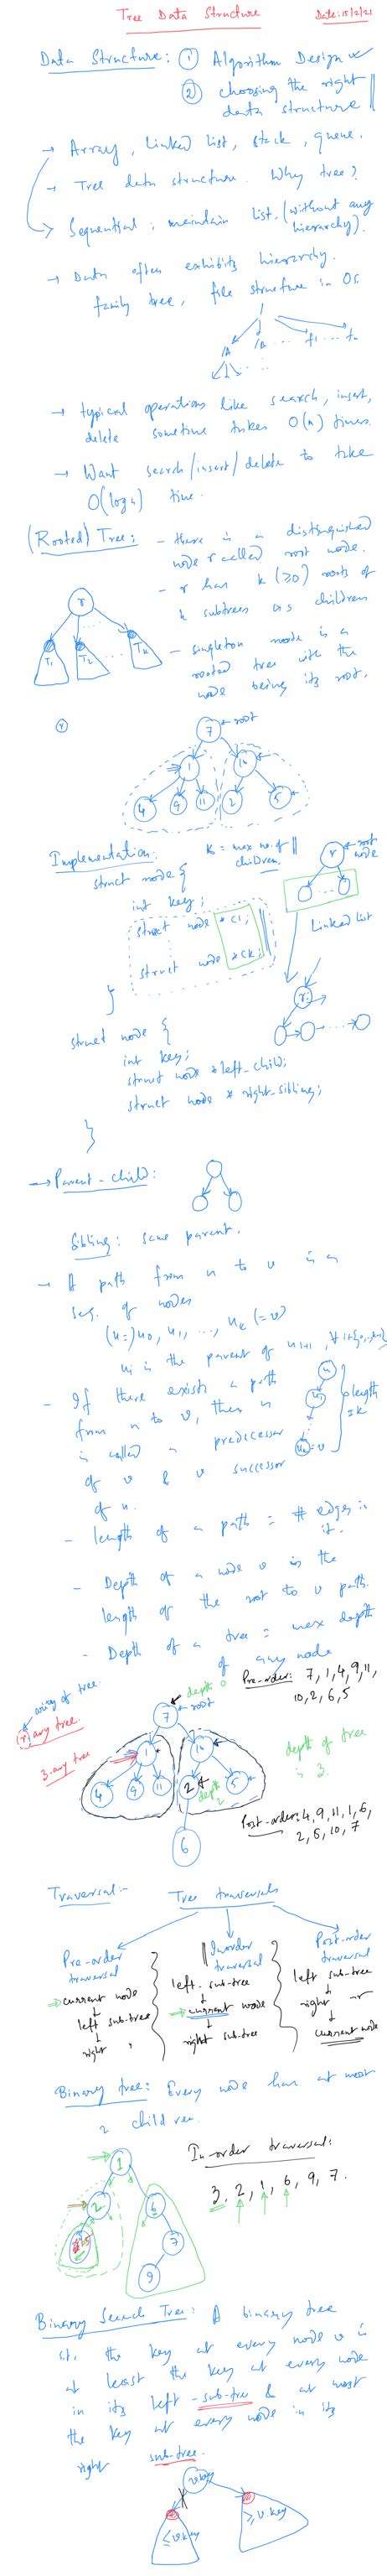 Tree Data Structure
Date: 15/2/21
Data Structure: ① Algorithm Design
② choosing the right
data structure
→ Array, Linked list, stack, queue.
→ Tree data structure. Why tree?
Sequential; maintain list. (without any
hierarchy).
→ Data often exhibits hierarchy.
family tree, file structure in OS.
/
/A /A .... f1 ... fn
→ typical operations like search, insert,
delete sometime takes O(n) times.
→ Want search/insert/delete to take
O(log n) time.
(Rooted) Tree: - there is a distinguished
node r called root node.
- r has k (≥0) roots of
k subtrees as children
- singleton node is a
rooted tree with the
node being its root.
r
T1 T2 ... Tk
r
7 ← root
1 10
4 9 11 2 5
Implementation: k = max no. of
children.
struct node {
int key;
struct node *c1;
struct node *ck;
}
r ← root
node
Linked list
r
struct node {
int key;
struct node *left_child;
struct node * right_sibling;
}
→ Parent-child:
Sibling: same parent.
→ A path from u to v is a
seq. of nodes
(u=)u0, u1, ..., uk(=v)
ui is the parent of ui+1,
- If there exists a path
from u to v, then u
is called a predecessor
of v & v successor
of u.
u
u1
uk=v
length
=k
- length of a path = # edges in
it.
- Depth of a node v is the
length of the root to v path.
- Depth of a tree = max depth
of any node
arity of tree.
(r)-ary tree.
3-ary tree
depth 0
7 ← root
1 10
4 9 11 2 5
depth
2
6
Pre-order: 7, 1, 4, 9, 11,
10, 2, 6, 5
depth of tree
is 3.
Post-order: 4, 9, 11, 1, 6,
2, 5, 10, 7
Traversal:- Tree traversals
Pre-order
traversal
⇒ current node
↓
left sub-tree
↓
right "
Inorder
traversal
left sub-tree
↓
⇒ current node
↓
right sub-tree
Post-order
traversal
left sub-tree
↓
right "
↓
current node
Binary tree: Every node has at most
2 children.
1
2 6
3 7
9
In-order traversal:
3, 2, 1, 6, 9, 7.
Binary Search Tree: A binary tree
s.t. the key at every node v is
at least the key at every node
in its left-sub-tree & at most
the key at every node in its
right sub-tree.
v.key
≤v.key ≥v.key